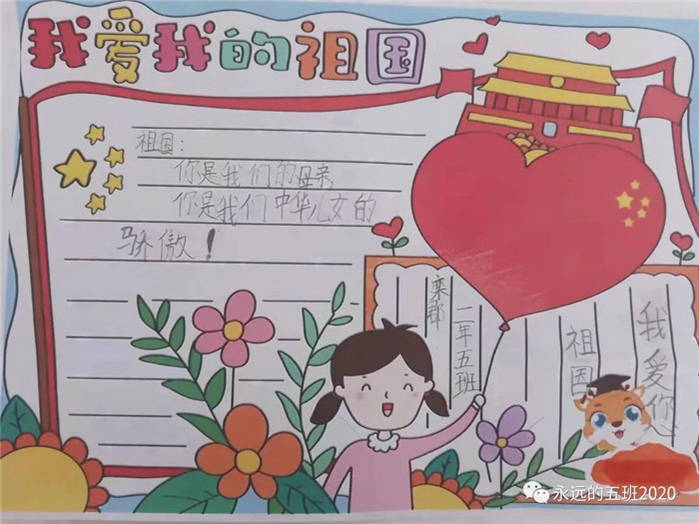 我爱我的祖国
祖国:
你是我们的母亲
你是我们中华儿女的
骄傲!
我爱你
祖国
二年五班
栾
永远的五班2020